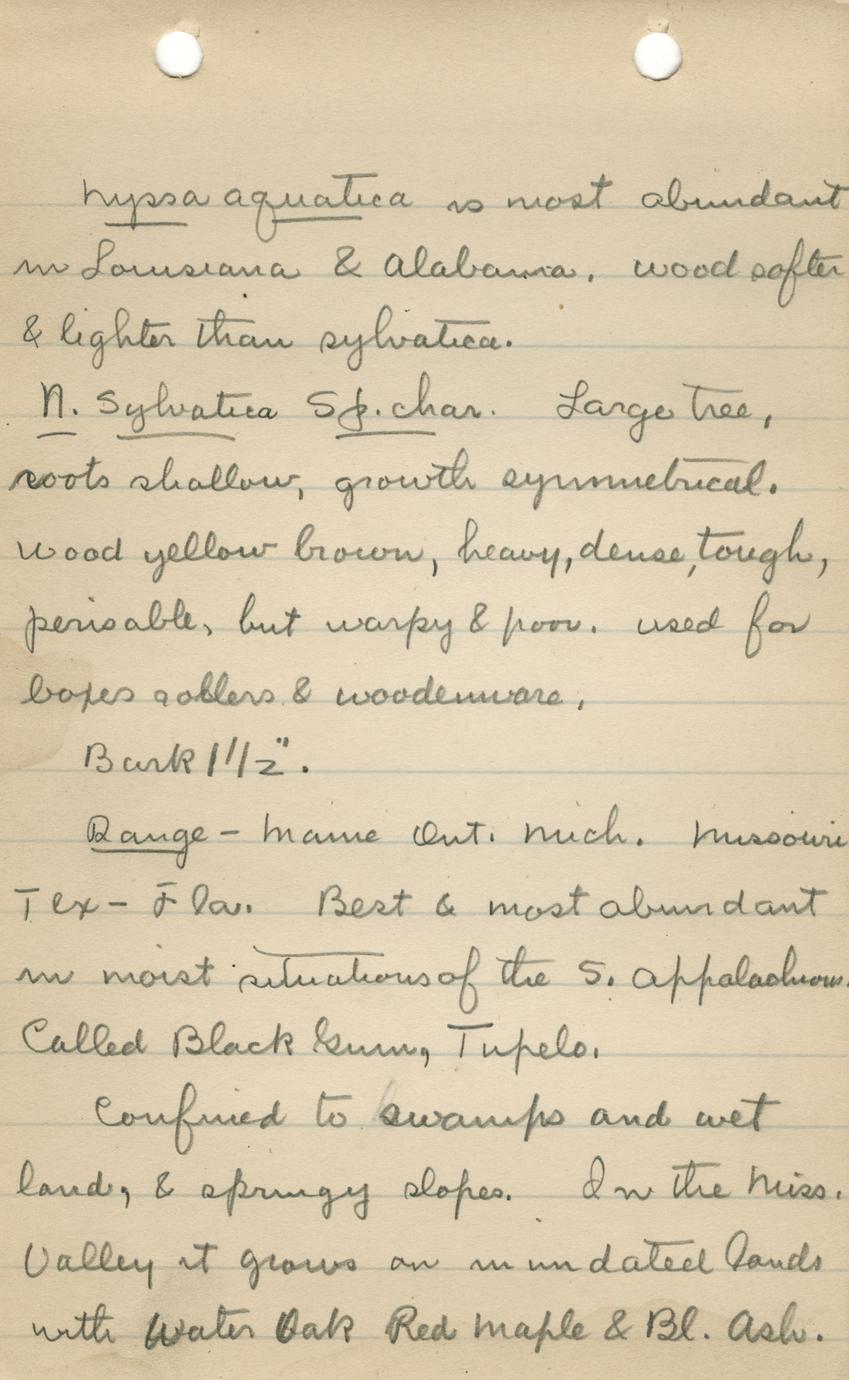 Nyssa aquatica is most abundant
in Louisiana & Alabama. wood softer
& lighter than sylvatica.
N. Sylvatica Sp. char. Large tree,
roots shallow, growth symmetrical.
wood yellow brown, heavy, dense, tough,
perisable, but warpy & poor. used for
boxes & woodenware,
Bark 1 1/2".
Range - Maine Ont. Mich. Missouri
Tex - Fla. Best & most abundant
in moist situations of the S. Appalachians.
Called Black Gum, Tupelo.
Confined to swamps and wet
land, & springy slopes. In the Miss.
Valley it grows on inundated lands
with Water Oak Red Maple & Bl. Ash.